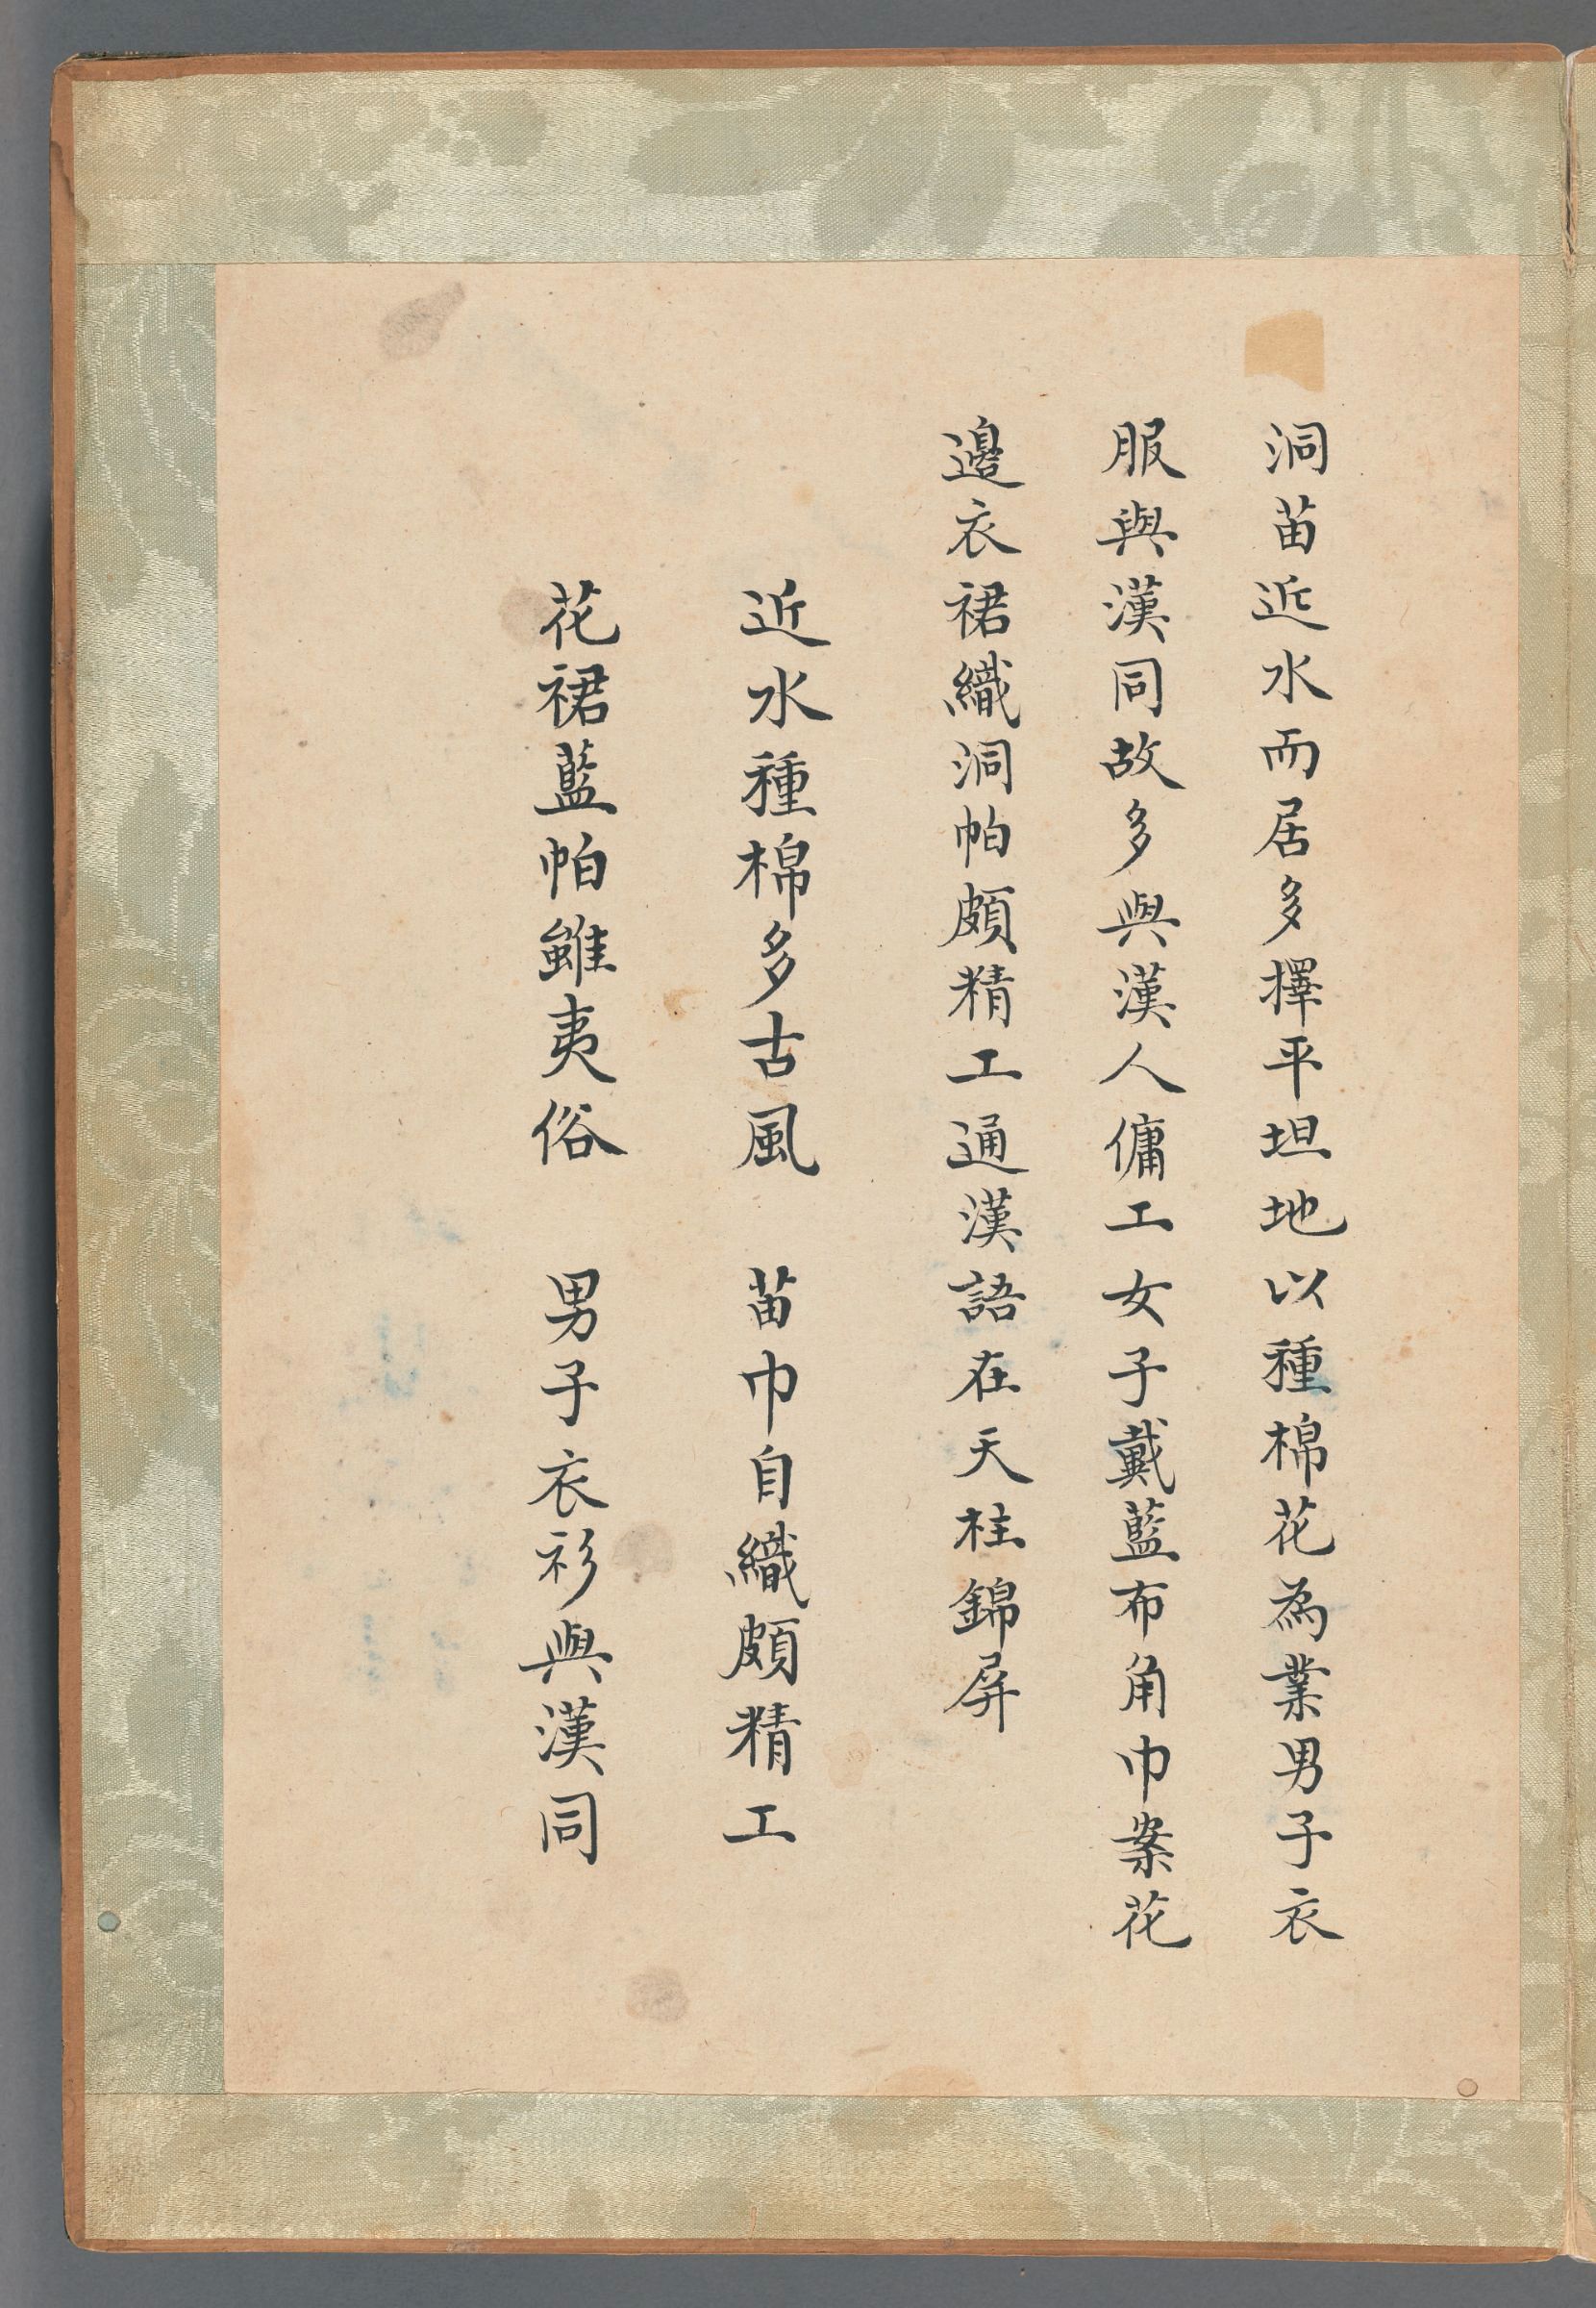 洞苗近水而居多擇平坦地以種棉花為業男子衣
服與漢同故多與漢人傭工女子戴藍布角巾案花
邊衣裙織洞帕頗精工通漢語在天柱錦屏
近水種棉多古風　苗巾自織頗精工
花裙藍帕雖夷俗　男子衣衫與漢同